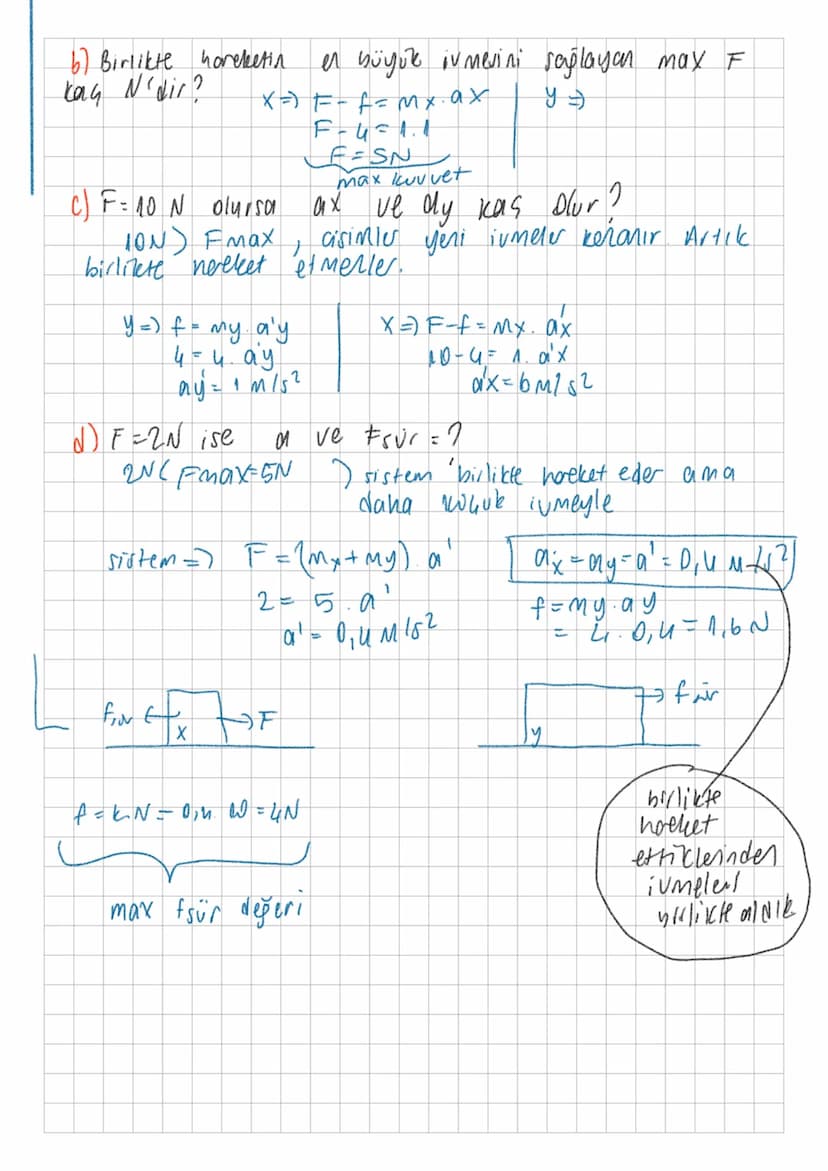 b) Birlikte hareketin en büyük ivmesini sağlayan max F
kaç N'dir?
x => F - f = mx . ax
F - 4 = 1.1
F = 5N
max kuvvet
y =>
c) F = 10 N olursa ax ve ay kaç olur?
10N > Fmax , cisimler yeni ivmeler kazanır. Artık
birlikte hareket etmezler.
y => f = my. a'y
4 = 4. a'y
a'y = 1 m/s²
x => F-f = mx. a'x
10-4 = 1. a'x
a'x = 6 m/s²
d) F = 2N ise a ve Fsür = ?
2N ( Fmax = 5N ) sistem birlikte hareket eder ama
daha küçük ivmeyle
sistem => F = (mx + my) . a'
2 = 5 . a'
a' = 0,4 m/s²
ax = ay = a' = 0,4 m/s²
f = my. ay
= 4. 0,4 = 1,6 N
fsür
x
F
y
fsür
f = kN = 0,4. 10 = 4N
max fsür değeri
birlikte
hareket
ettiklerinden
ivmeleri
birlikte aldık